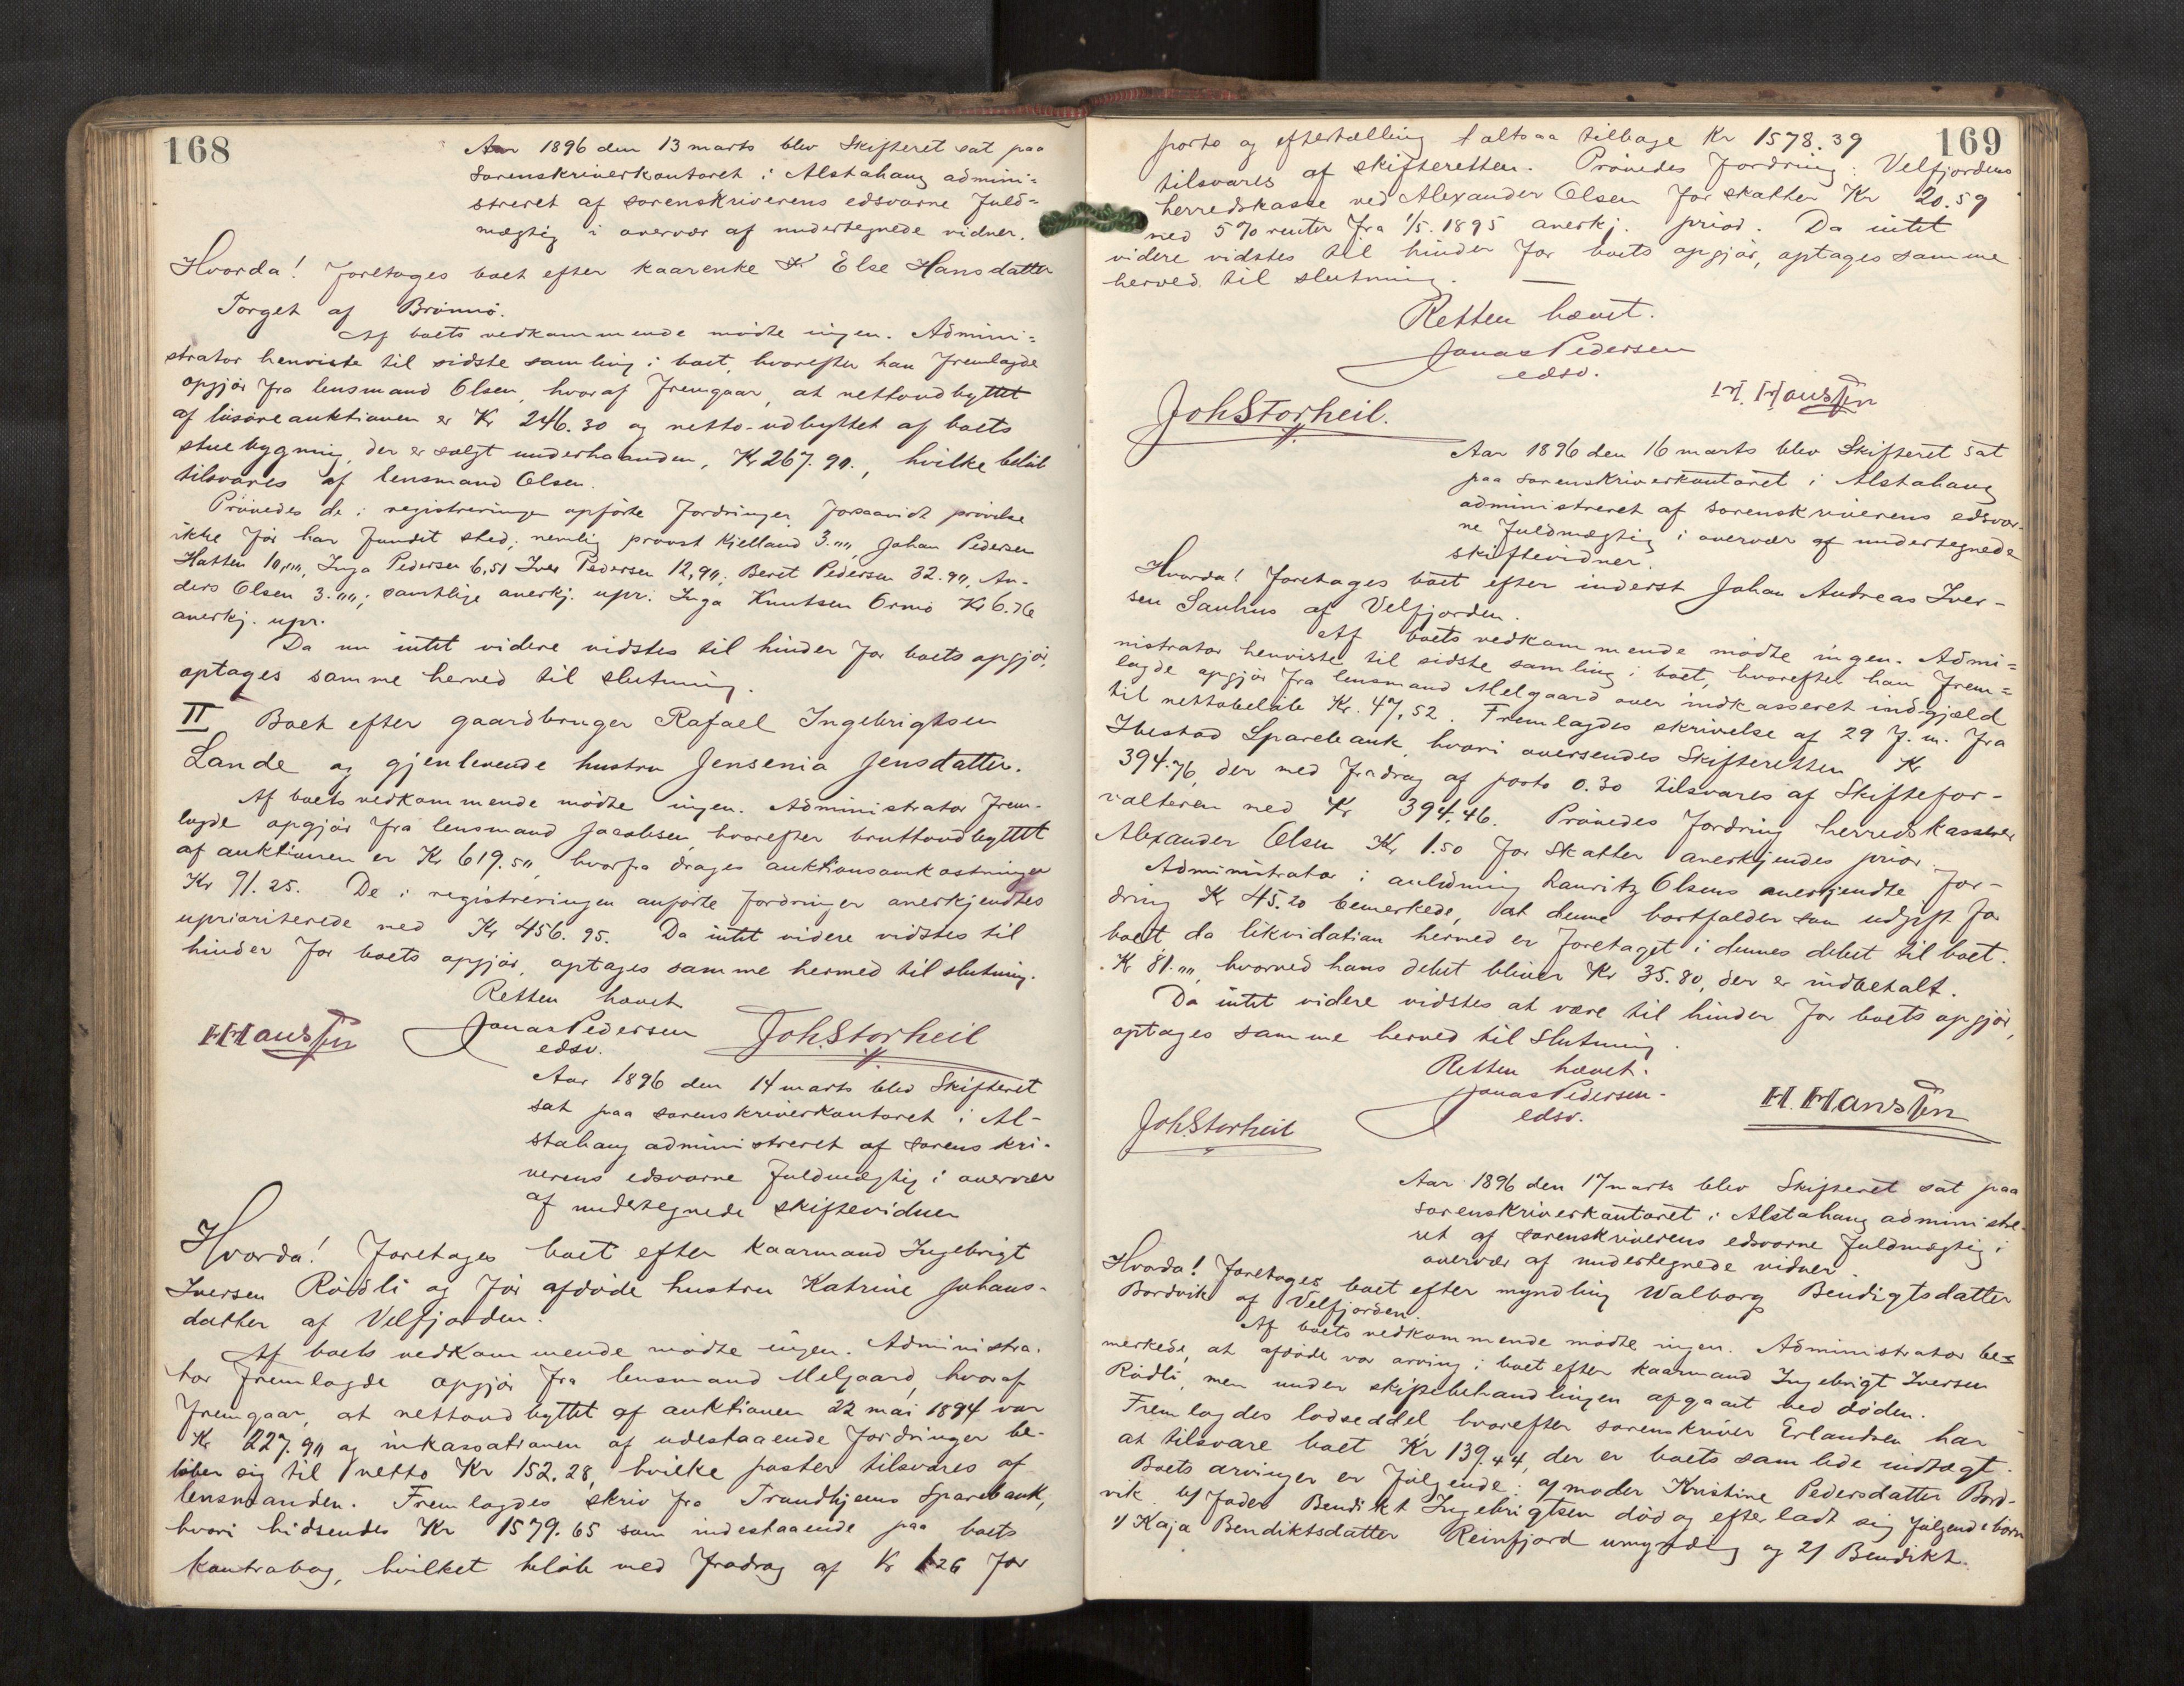 168
Aar 1896 den 13 marts blev Skifteret sat paa
sorenskriverkontoret i Alstahaug admini=
streret af sorenskriverens edsvorne fuld=
mægtig i overvær af undertegnede vidner.
Hvorda! foretoges boet efter kaarenke Else Hansdatter
Torget af Brönnö.
Af boets vedkommende mødte ingen. Admini=
strator henviste til sidste samling i boet, hvorefter han fremlagde
opgjör fra lensmand Olsen, hvoraf fremgaar, at nettoudbyttet
af lösöreauktionen er Kr 246.30 og netto-udbyttet af boets
stuebygning, der er solgt underhaanden, Kr 267.90., hvilke belöb
tilsvares af lensmand Olsen.
Prövedes de i registreringen opförte fordringer, forsaavidt prövelse
ikke för har fundet sted; nemlig provst Kjelland 3."", Johan Pedersen
Hatten 10,"", Inga Pedersen 6,51 Iver Pedersen 12,90; Beret Pedersen 32.90, An-
ders Olsen 3.""; samtlige anerkj. upr. Inga Knutsen Ormö Kr 6.76
anerkj. upr.
Da nu intet videre vidstes til hinder for boets opgjör,
optages samme herved til slutning.
II Boet efter gaardbruger Rafael Ingebrigtsen
Lande og gjenlevende hustru Jensenia Jensdatter.
Af boets vedkommende mödte ingen. Administrator frem-
lagde opgjör fra lensmand Jacobsen, hvorefter bruttoudbyttet
af auktionen er Kr 619.50, hvorfra drages auktionsomkostninger
Kr 91.25. De i registreringen anförte fordringer anerkjendtes
uprioriterede med Kr 456.95. Da intet videre vidstes til
hinder for boets opgjör, optages samme hermed til slutning.
Retten hævet
Jonas Pedersen
edsv.
H Hansen
Joh. Storheil
Aar 1896 den 14 marts blev Skifteret
sat paa sorenskriverkontoret i Al-
stahaug administreret af sorenskri-
verens edsvorne fuldmægtig i overvær
af undertegnede skiftevidner
Hvorda! foretoges boet efter kaarmand Ingebrigt
Iversen Rödli og för afdöde hustru Katrine Johans-
datter af Velfjorden.
Af boets vedkommende mödte ingen. Administra-
tor fremlagde opgjör fra lensmand Melgaard, hvoraf
fremgaar, at nettoudbyttet af auktionen 22 mai 1894 var
Kr 227.90 og inkassationen af udestaaende fordringer be-
löber sig til netto Kr 152.28, hvilke poster tilsvares af
lensmanden. Fremlagdes skriv fra Trondhjems Sparebank,
hvori hidsendes Kr 1579.65 som indestaaende paa boets
kontrabog, hvilket belöb med fradrag af Kr 1.26 for
169
porto og eftertælling f altsaa tilbage Kr 1578.39
tilsvares af skifteretten. Prövedes fordring: Velfjordens
herredskasse ved Alexander Olsen for skatter Kr 20.59
med 5% renter fra 1/5. 1895 anerkj. priod. Da intet
videre vidstes til hinder for boets opgjör, optages samme
herved til slutning.
Retten hævet.
Jonas Pedersen
edsv.
Joh Storheil.
H. Hansen
Aar 1896 den 16 marts blev Skifteret sat
paa sorenskriverkontoret i Alstahaug
administreret af sorenskriverens edsvor-
ne fuldmægtig i overvær af undertegnede
skiftevidner.
Hvorda! foretoges boet efter inderst Johan Andreas Iver-
sen Sauhus af Velfjorden.
Af boets vedkommende mödte ingen. Admi=
nistrator henviste til sidste samling i boet, hvorefter han frem=
lagde opgjör fra lensmand Melgaard over indkasseret indgjæld
til nettobelöb Kr. 47,52. Fremlagdes skrivelse af 29 f.m. fra
Ibestad Sparebank, hvori oversendes Skifteretten Kr
394.76, der med fradrag af porto 0.30 tilsvares af Skiftefor-
valteren med Kr 394.46. Prövedes fordring herredskasserer
Alexander Olsen Kr 1.50 for Skatter anerkjendes prior.
Administrator i anledning Lauritz Olsens anerkjendte for-
dring Kr 45.20 bemerkede, at denne bortfalder som udgift for
boet, da likvidation herved er foretaget i dennes debet til boet.
Kr 81."", hvorved hans debet bliver Kr 35.80, der er indbetalt.
Da intet videre vidstes at være til hinder for boets opgjör,
optages samme herved til Slutning.
Retten hævet.
Jonas Pedersen.
edsv.
Joh. Storheil
H. Hansen
Aar 1896 den 17 marts blev Skifteret sat paa
sorenskriverkontoret i Alstahaug administre-
ret af sorenskriverens edsvorne fuldmægtig i
overvær af undertegnede vidner.
Hvorda! foretoges boet efter myndling Walborg Bendigtsdatter
Bordvik af Velfjorden.
Af boets vedkommende mödte ingen. Administrator be=
merkede, at afdöde var arving i boet efter kaarmand Ingebrigt Iversen
Rödli, men under skiftebehandlingen afgaaet ved döden.
Fremlagdes lodseddel, hvorefter sorenskriver Erlandsen har
at tilsvare boet Kr 139.44, der er boets samlede indtægt.
Boets arvinger er fölgende: a/ moder Kristine Pedersdatter Bord-
vik b/ fader Bendikt Ingebrigtsen död og efterladt sig fölgende börn
1/ Kaja Bendiktsdatter Reinfjord umyndig og 2/ Bendikt.